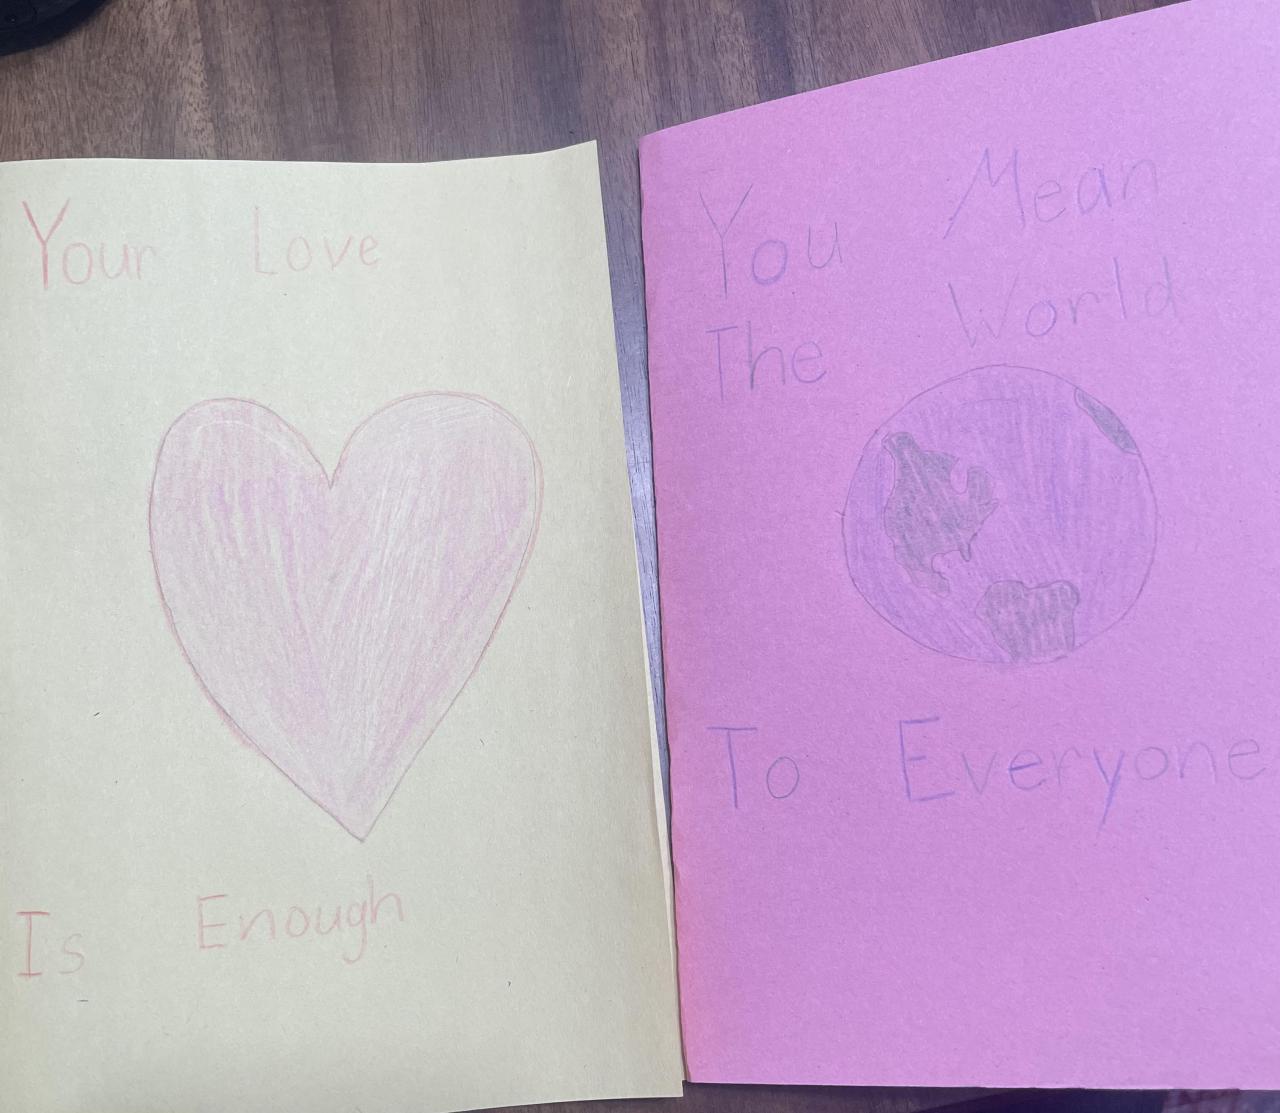 Your Love
Is Enough
You Mean
The World
To Everyone